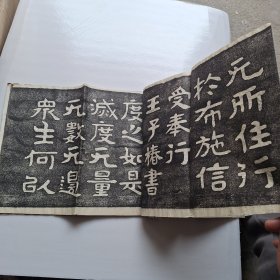 无所住行
於布施信
受奉行
王子椿書
度之如是
滅度无量
无數无邊
衆生何以